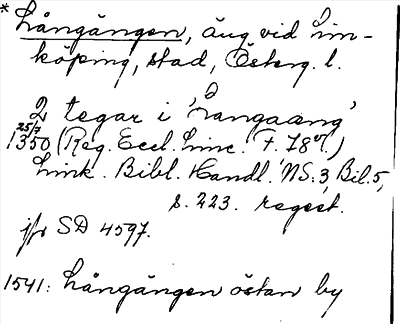 * Långängen, äng vid Lin-
köping, stad, Österg. l.
2 tegar i 'rangaæng'
25/7
1350 (Reg. Eccl. Linc. F. 78v.)
Link. Bibl. Handl. NS: 3, Bil. 5,
s. 223. regest.
jfr SD 4597.
1541: Långängen östan by